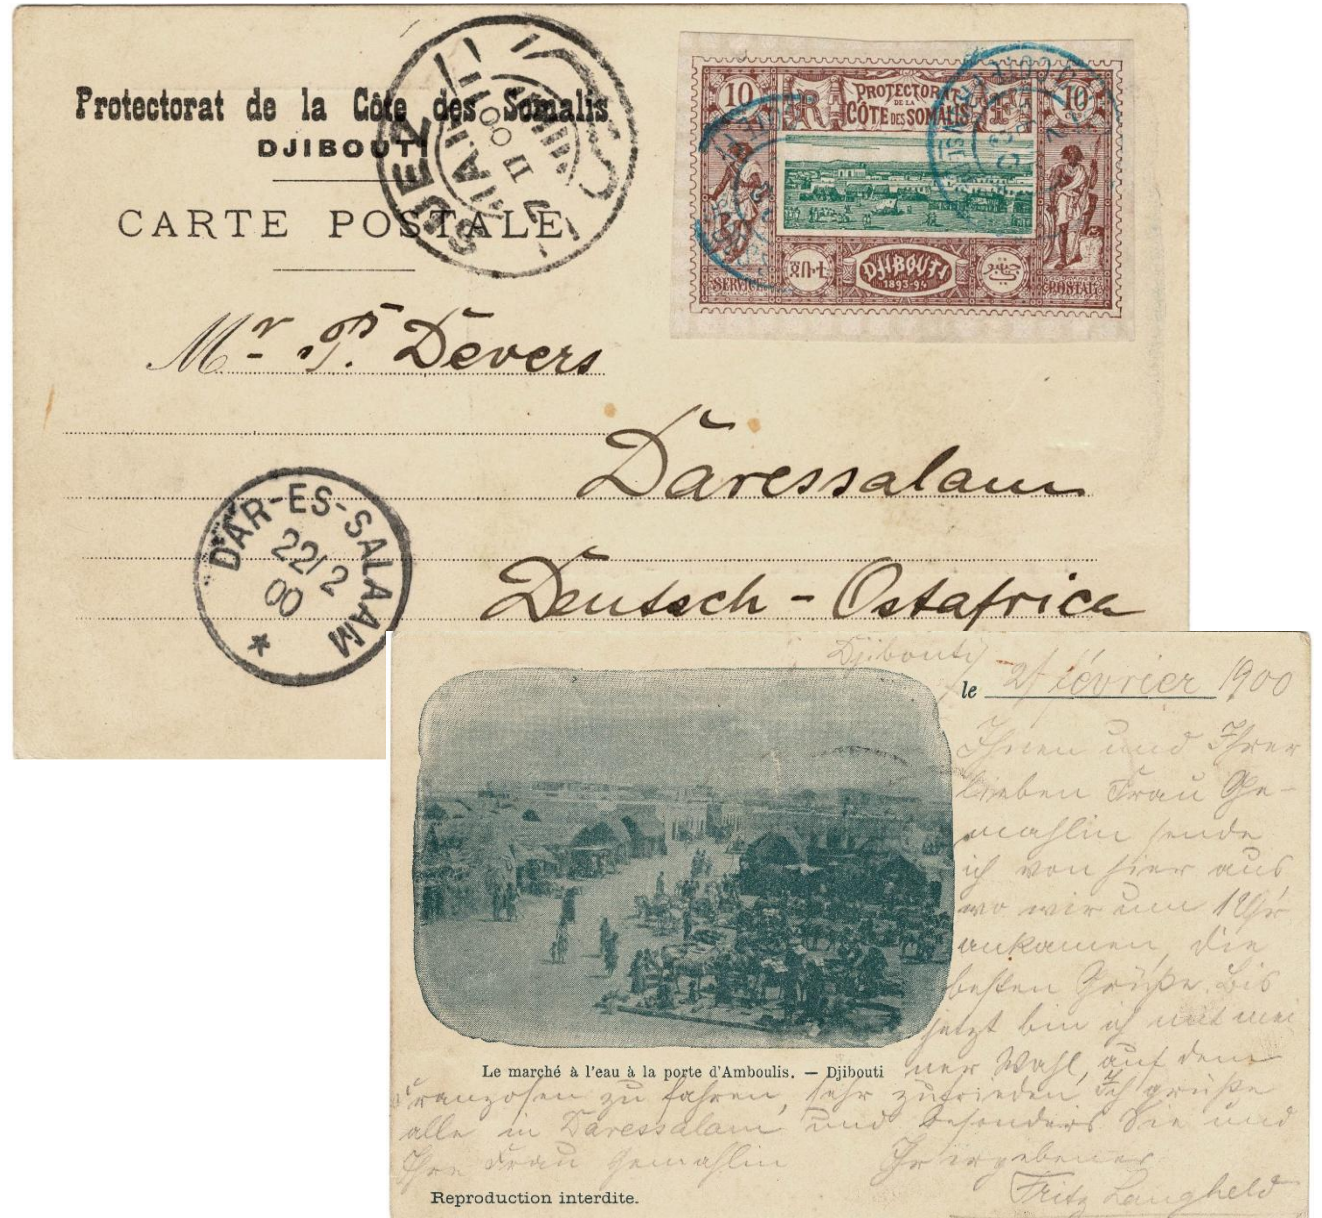 Protectorat de la Côte des Somalis
DJIBOUTI
CARTE POSTALE
SUEZ
10
PROTECTORAT
DE LA
CÔTE DES SOMALIS
10
RF
SERVICE
DJIBOUTI
1893-94
POSTAL
Mr. P. Devers
Daressalam
Deutsch - Ostafrica
DAR-ES-SALAAM
22/2
00
Djibouti
le 2 février 1900
Ihnen und Ihrer
lieben Frau Ge-
mahlin sende
ich von hier aus
wo wir um 1 Uhr
ankamen, die
besten Grüße. Bis
jetzt bin ich mit mei
ner Wahl, auf dem
Le marché à l'eau à la porte d'Amboulis. — Djibouti
Franzosen zu fahren, sehr zufrieden. Ich grüße
alle in Daressalam und besonders Sie und
Ihre Frau Gemahlin Ihr ergebener
Fritz Langheld
Reproduction interdite.